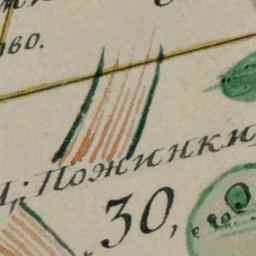 ово.
Пожинки
30,